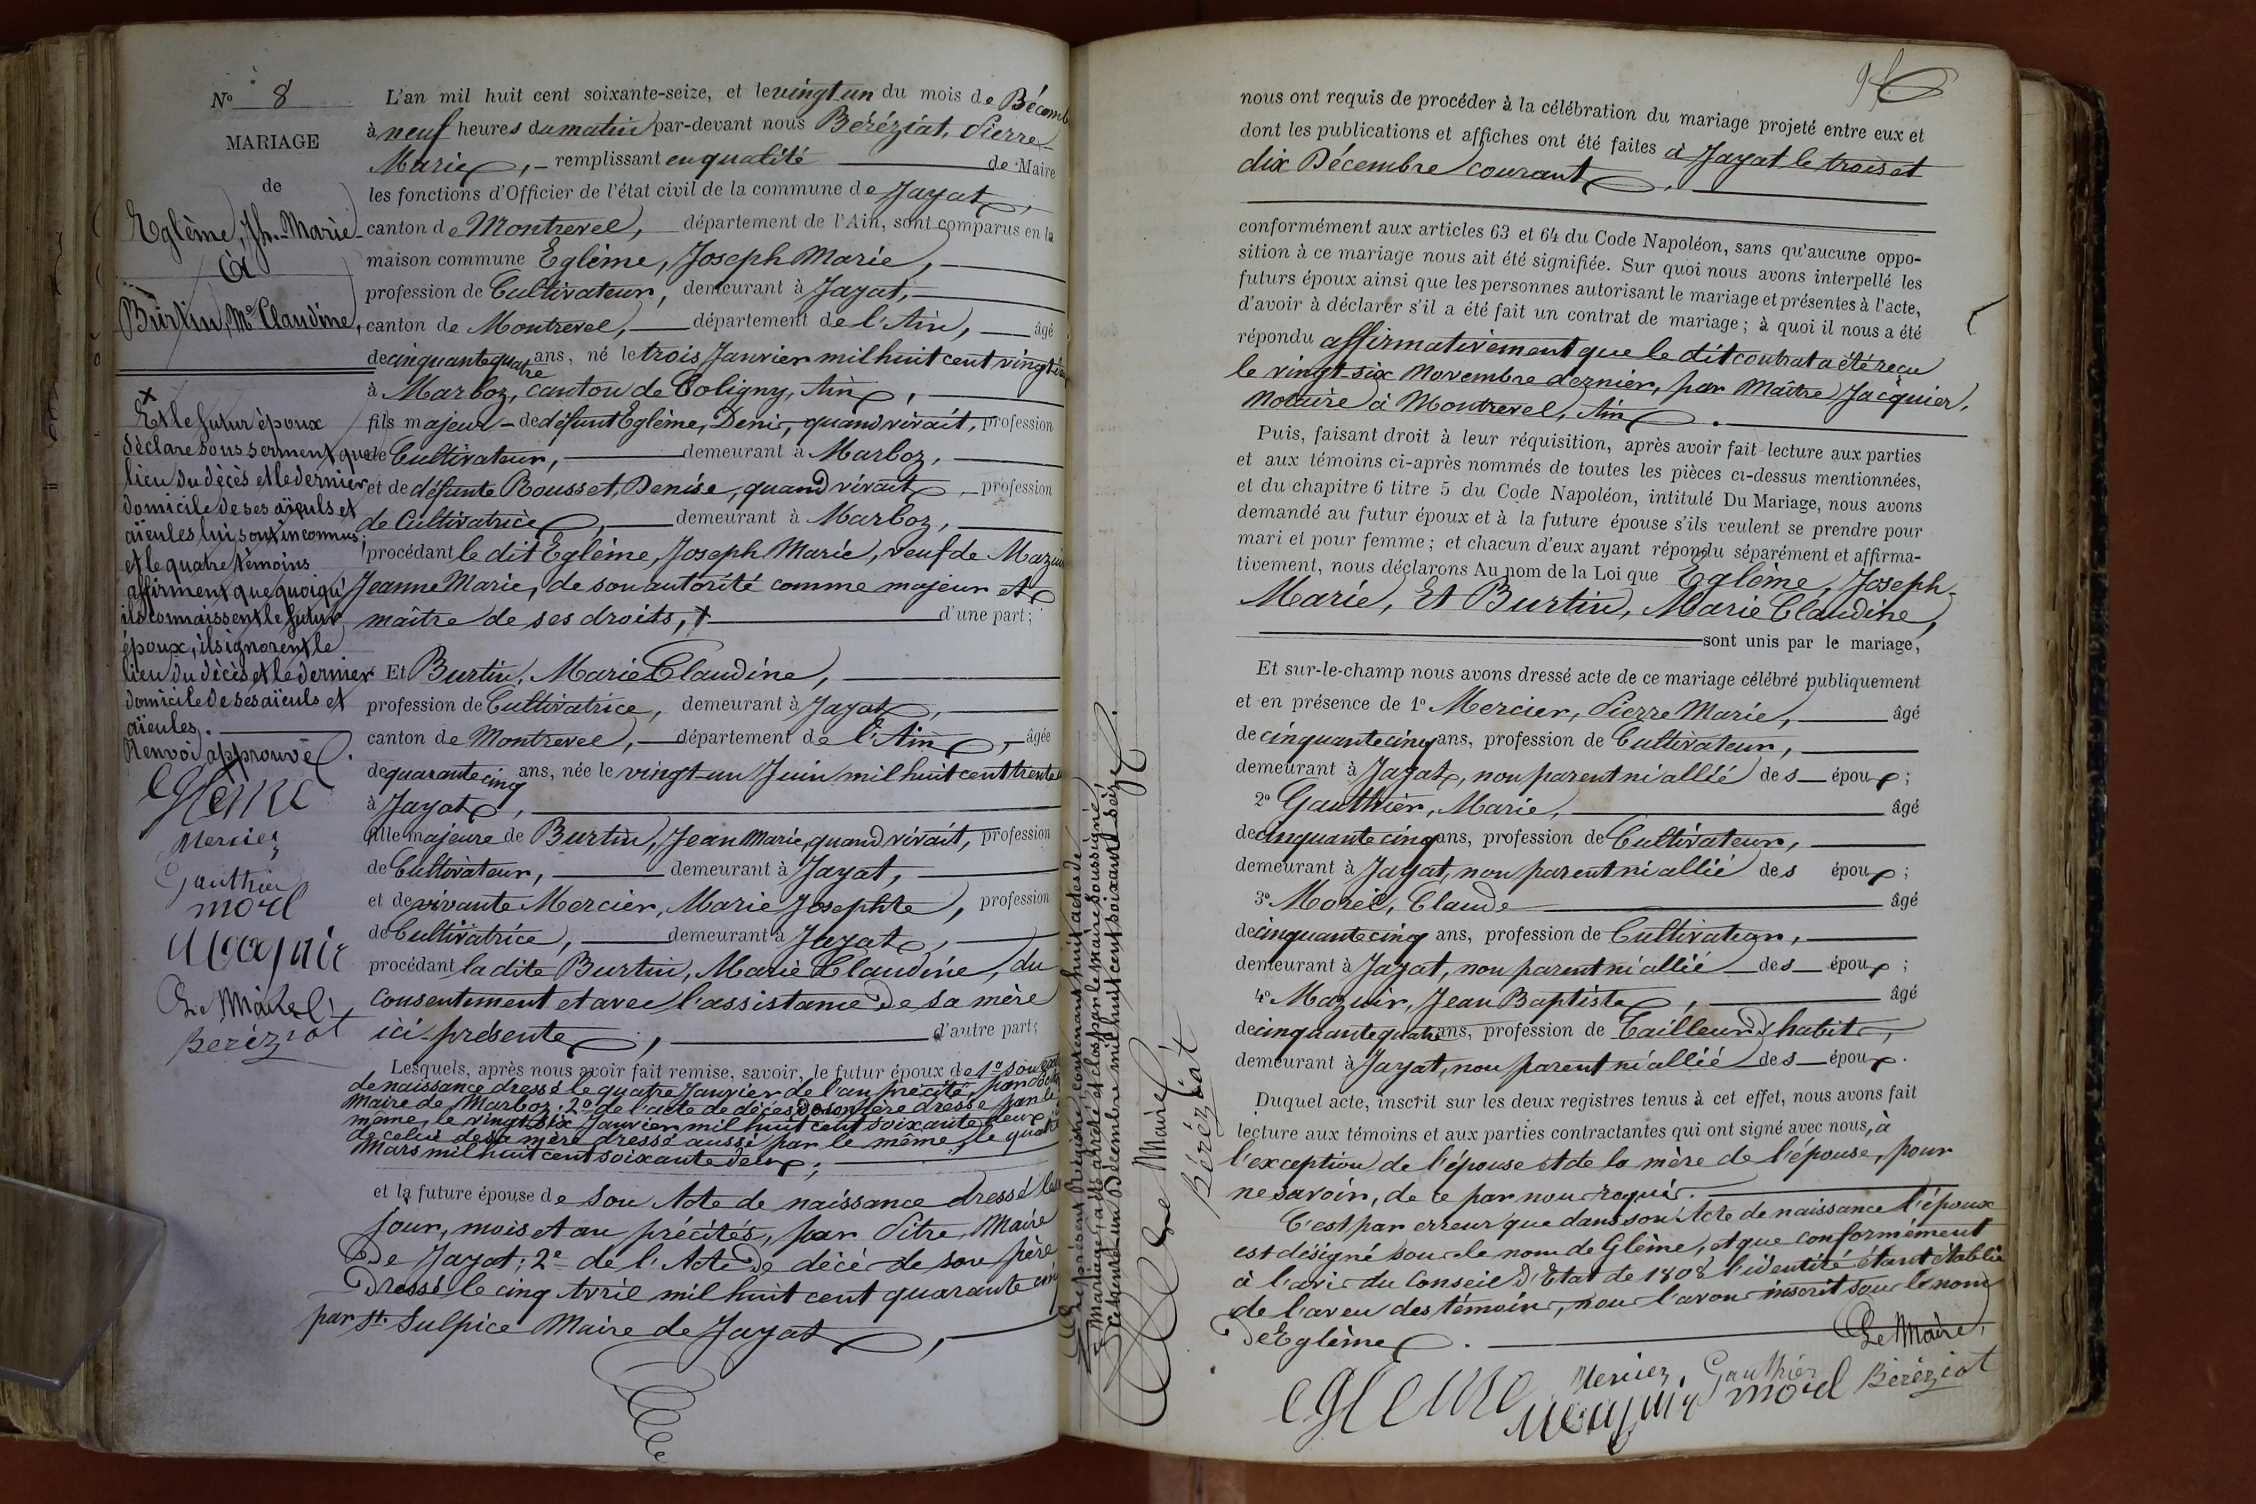 Nº 8
MARIAGE
de
Eglème, Jh.-Marie
Et
Burtin, Mie Claudine,
L'an mil huit cent soixante-seize, et le vingt-un du mois de Décemb
à neuf heures du matin par-devant nous Béréziat, Pierre
Marie, remplissant en qualité de Maire
les fonctions d'Officier de l'état civil de la commune de Jayat,
canton de Montrevel, département de l'Ain, sont comparus en la
maison commune Eglème, Joseph Marie,
profession de Cultivateur, demeurant à Jayat,
canton de Montrevel, département de l'Ain, âgé
de cinquante quatre ans, né le trois Janvier mil huit cent vingt-
à Marboz, canton de Coligny, Ain,
fils majeur de défunt Eglème, Denis, quand vivait, profession
de Cultivateur, demeurant à Marboz,
et de défunte Rousset, Denise, quand vivait, profession
de Cultivatrice, demeurant à Marboz,
procédant le dit Eglème, Joseph Marie, veuf de Mazuir
Jeanne Marie, de son autorité comme majeur et
maître de ses droits, + d'une part;
Et Burtin, Marie Claudine,
profession de Cultivatrice, demeurant à Jayat,
canton de Montrevel, département de l'Ain, âgée
de quarante cinq ans, née le vingt-un Juin mil huit cent trente
à Jayat,
fille majeure de Burtin, Jean Marie, quand vivait, profession
de Cultivateur, demeurant à Jayat,
et de vivante Mercier, Marie Josephte, profession
de Cultivatrice, demeurant à Jayat,
procédant la dite Burtin, Marie Claudine, du
consentement et avec l'assistance de sa mère
ici présente, d'autre part;
Lesquels, après nous avoir fait remise, savoir, le futur époux de 1º son
de naissance dressé le quatre Janvier de l'an précité, par
Maire de Marboz; 2º de l'acte de décès de son père dressé par le
même, le vingt-six Janvier mil huit cent soixante deux,
de celui de sa mère dressé aussi par le même, le quatre
Mars mil huit cent soixante deux;
et la future épouse de son Acte de naissance dressé les
jour, mois et an précités, par Pitre, Maire
de Jayat; 2º de l'Acte de décès de son père
Dressé le cinq Avril mil huit cent quarante cinq
par St. Sulpice Maire de Jayat,
+
Et le futur époux
déclare sous serment que le
lieu du décès et le dernier
domicile de ses aïeuls et
aïeules lui sont inconnus;
et le quatre témoins
affirment que quoiqu'
ils connaissent le futur
époux, ils ignorent le
lieu du décès et le dernier
domicile de ses aïeuls et
aïeules.
Renvoi approuvé.
Egleme
Mercier
Gauthier
morel
Mazuir
Le Maire,
Béréziat
Le présent Registre, contenant huit actes de
Mariage, a été arrêté et clos par le maire soussigné,
le trente-un Décembre mil huit cent soixante seize.
Le Maire,
Béréziat
nous ont requis de procéder à la célébration du mariage projeté entre eux et
dont les publications et affiches ont été faites à Jayat le trois et
dix Décembre courant,
conformément aux articles 63 et 64 du Code Napoléon, sans qu'aucune oppo-
sition à ce mariage nous ait été signifiée. Sur quoi nous avons interpellé les
futurs époux ainsi que les personnes autorisant le mariage et présentes à l'acte,
d'avoir à déclarer s'il a été fait un contrat de mariage; à quoi il nous a été
répondu affirmativement que le dit contrat a été reçu
le vingt-six Novembre dernier, par Maître Jacquier,
Notaire à Montrevel, Ain.
Puis, faisant droit à leur réquisition, après avoir fait lecture aux parties
et aux témoins ci-après nommés de toutes les pièces ci-dessus mentionnées,
et du chapitre 6 titre 5 du Code Napoléon, intitulé Du Mariage, nous avons
demandé au futur époux et à la future épouse s'ils veulent se prendre pour
mari et pour femme; et chacun d'eux ayant répondu séparément et affirma-
tivement, nous déclarons Au nom de la Loi que Eglème, Joseph-
Marie, Et Burtin, Marie Claudine,
sont unis par le mariage,
Et sur-le-champ nous avons dressé acte de ce mariage célébré publiquement
et en présence de 1º Mercier, Pierre Marie, âgé
de cinquante cinq ans, profession de Cultivateur,
demeurant à Jayat, non parent ni allié des époux;
2º Gauthier, Marie, âgé
de cinquante cinq ans, profession de Cultivateur,
demeurant à Jayat, non parent ni allié des époux;
3º Morel, Claude âgé
de cinquante cinq ans, profession de Cultivateur,
demeurant à Jayat, non parent ni allié des époux;
4º Mazuir, Jean Baptiste, âgé
de cinquante quatre ans, profession de Tailleur d'habits,
demeurant à Jayat, non parent ni allié des époux.
Duquel acte, inscrit sur les deux registres tenus à cet effet, nous avons fait
lecture aux témoins et aux parties contractantes qui ont signé avec nous, à
l'exception de l'épouse et de la mère de l'épouse, pour
ne savoir, de ce par nous requis.
C'est par erreur que dans son Acte de naissance l'époux
est désigné sous le nom de Glème, et que conformément
à l'avis du Conseil d'Etat de 1808 l'identité étant établie
de l'aveu des témoins, nous l'avons inscrit sous le nom
de Eglème.
Le Maire,
Eglème Mercier Gauthier Béréziat
Mazuir morel